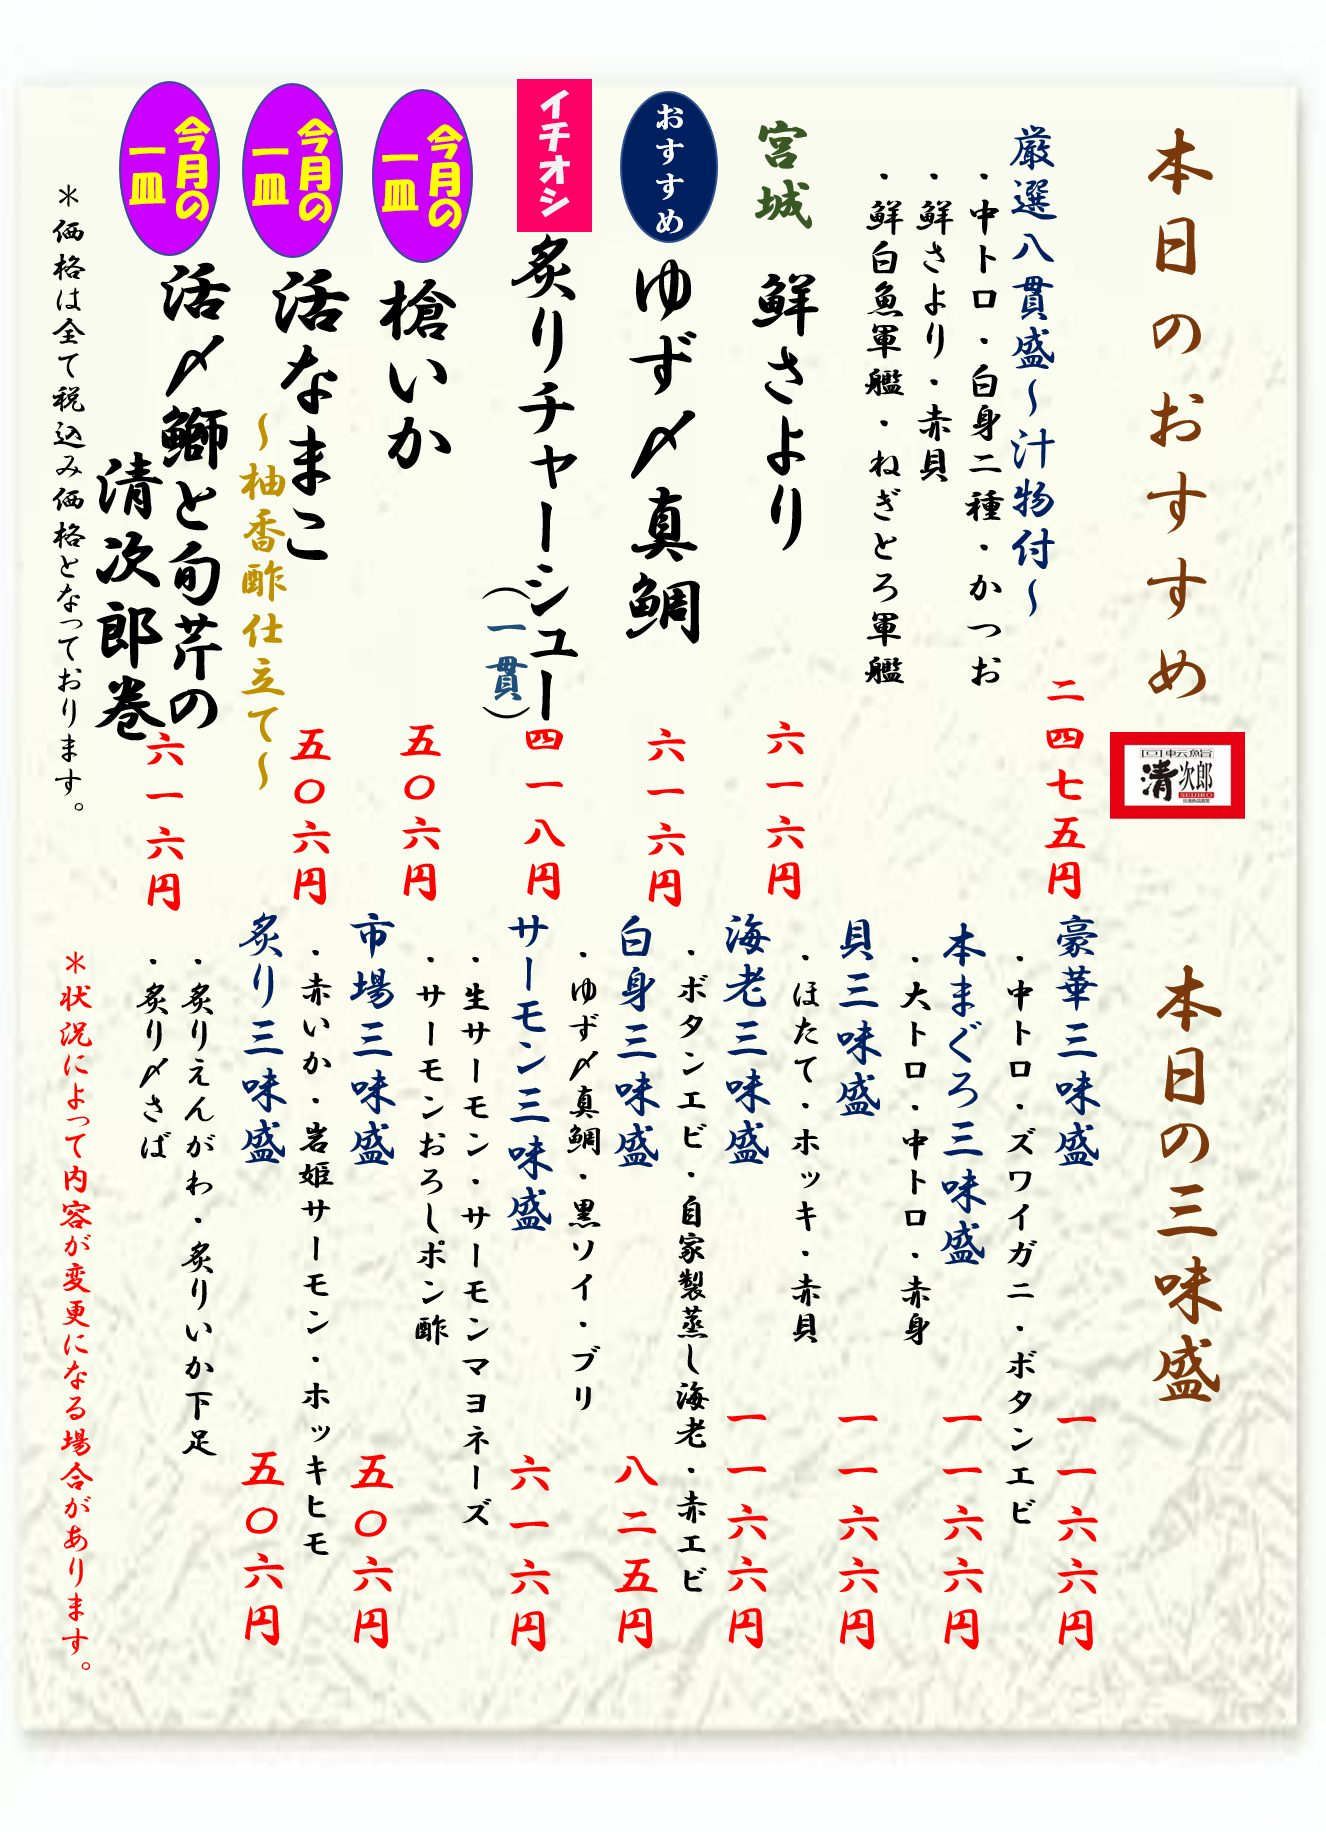 本日のおすすめ
回転鮨
清次郎
SEIJIRO
厳選八貫盛～汁物付～
二四七五円
・中トロ・白身二種・かつお
・鮮さより・赤貝
・鮮白魚軍艦・ねぎとろ軍艦
宮城
鮮さより
六一六円
おすすめ
ゆず〆真鯛
六一六円
イチオシ
炙りチャーシュー
（一貫）
四一八円
今月の
一皿
槍いか
五〇六円
今月の
一皿
活なまこ
～柚香酢仕立て～
五〇六円
今月の
一皿
活〆鰤と旬芹の
清次郎巻
六一六円
＊価格は全て税込み価格となっております。
本日の三味盛
豪華三味盛
一一六六円
・中トロ・ズワイガニ・ボタンエビ
本まぐろ三味盛
一一六六円
・大トロ・中トロ・赤身
貝三味盛
一一六六円
・ほたて・ホッキ・赤貝
海老三味盛
一一六六円
・ボタンエビ・自家製蒸し海老・赤エビ
白身三味盛
八二五円
・ゆず〆真鯛・黒ソイ・ブリ
サーモン三味盛
六一六円
・生サーモン・サーモンマヨネーズ
・サーモンおろしポン酢
市場三味盛
五〇六円
・赤いか・岩姫サーモン・ホッキヒモ
炙り三味盛
五〇六円
・炙りえんがわ・炙りいか下足
・炙り〆さば
＊状況によって内容が変更になる場合があります。